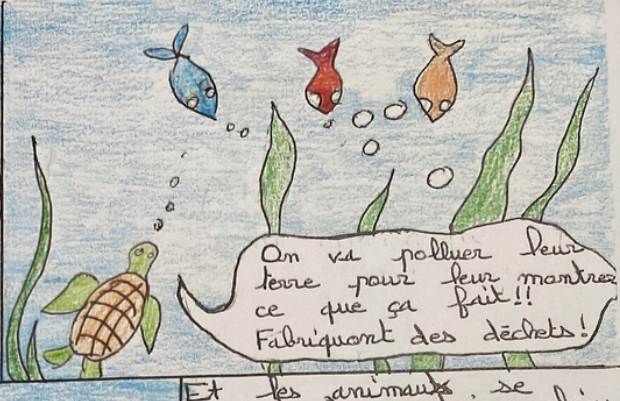 On va polluer leur
terre pour leur montrer
ce que ça fait!!
Fabriquont des déchets!
Et les animaux se